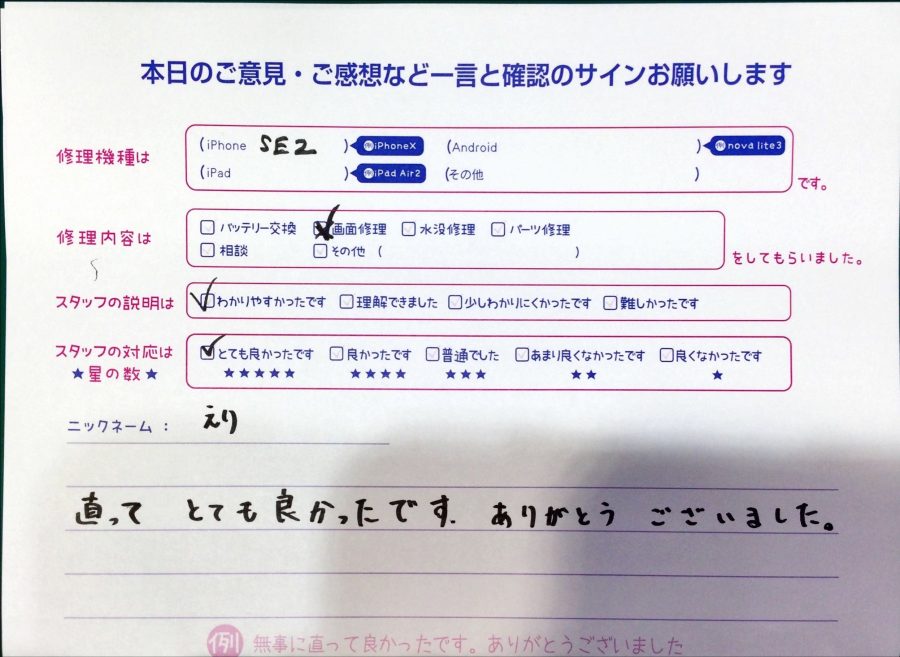 本日のご意見・ご感想など一言と確認のサインお願いします
修理機種は (iPhone SE2 ) 例 iPhoneX (Android ) 例 nova lite3
(iPad ) 例 iPad Air2 (その他 ) です。
修理内容は バッテリー交換 画面修理 水没修理 パーツ修理
相談 その他 ( ) をしてもらいました。
スタッフの説明は わかりやすかったです 理解できました 少しわかりにくかったです 難しかったです
スタッフの対応は とても良かったです 良かったです 普通でした あまり良くなかったです 良くなかったです
★星の数★ ★★★★★ ★★★★ ★★★ ★★ ★
ニックネーム : えり
直って とても良かったです. ありがとう ございました。
例 無事に直って良かったです。ありがとうございました